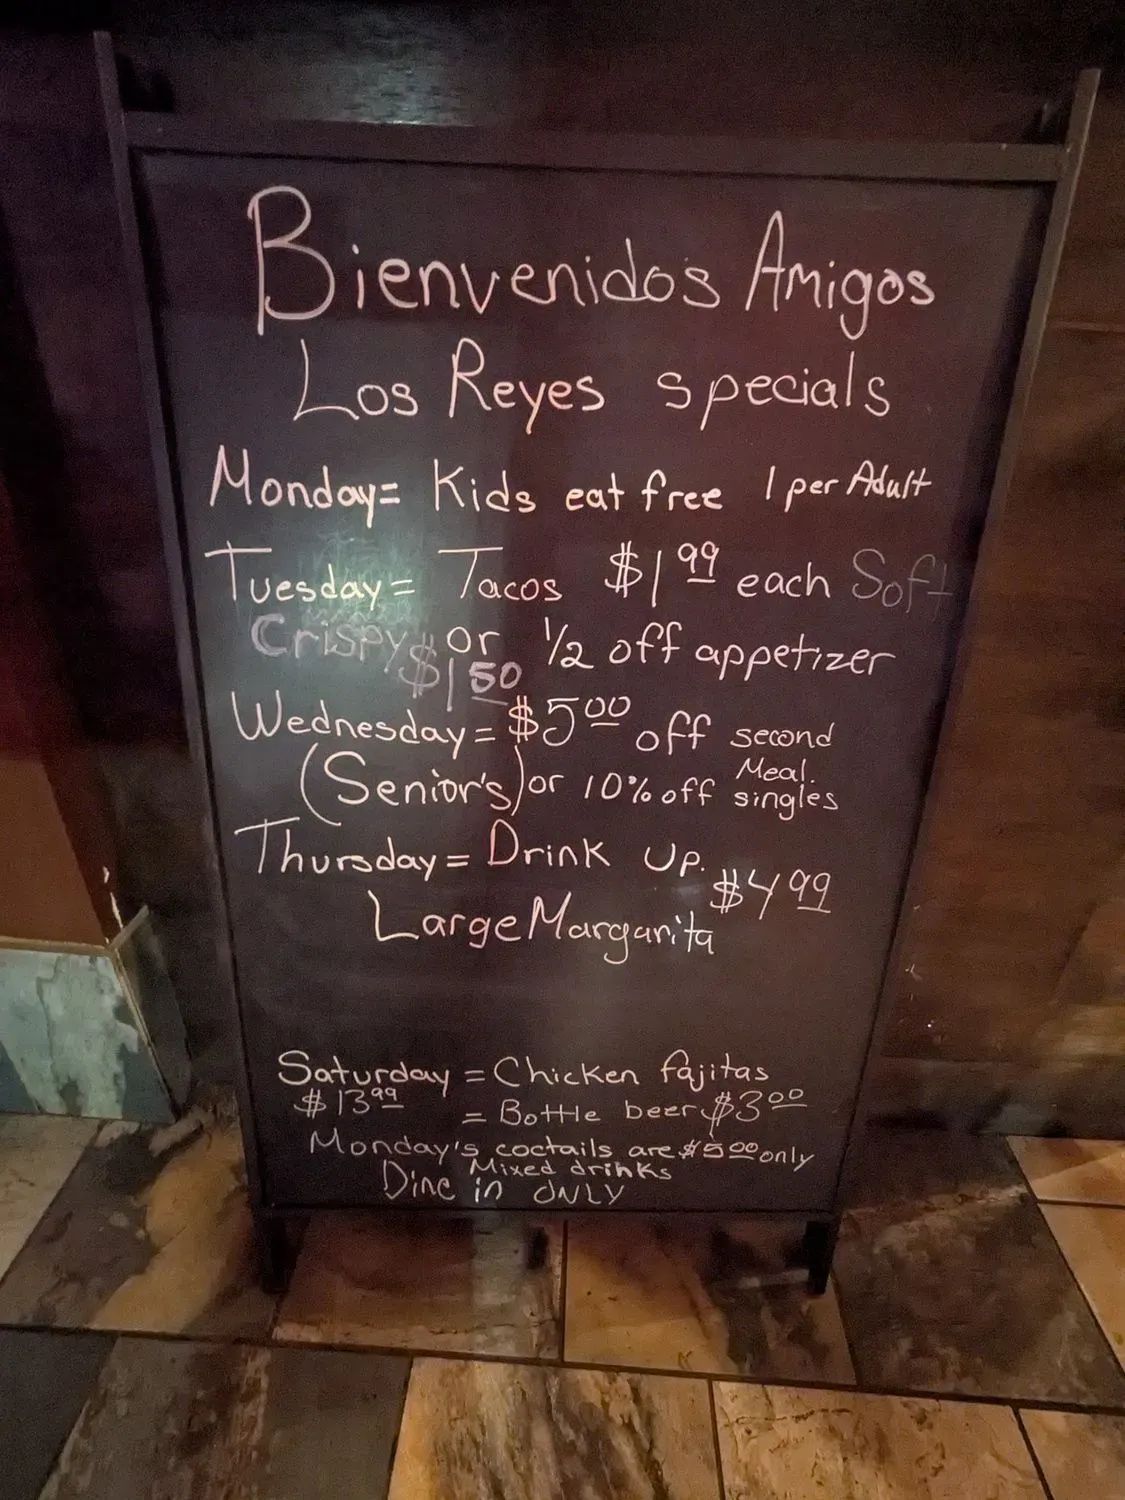 Bienvenidos Amigos
Los Reyes specials
Monday= Kids eat free 1 per Adult
Tuesday= Tacos $1.99 each Soft
Crispy $1.50 or 1/2 off appetizer
Wednesday= $5.00 off second Meal.
(Senior's) or 10% off singles
Thursday= Drink up.
Large Margarita $4.99
Saturday = Chicken fajitas
$13.99 = Bottle beer $3.00
Monday's coctails are $5.00 only
Mixed drinks
Dine in ONLY